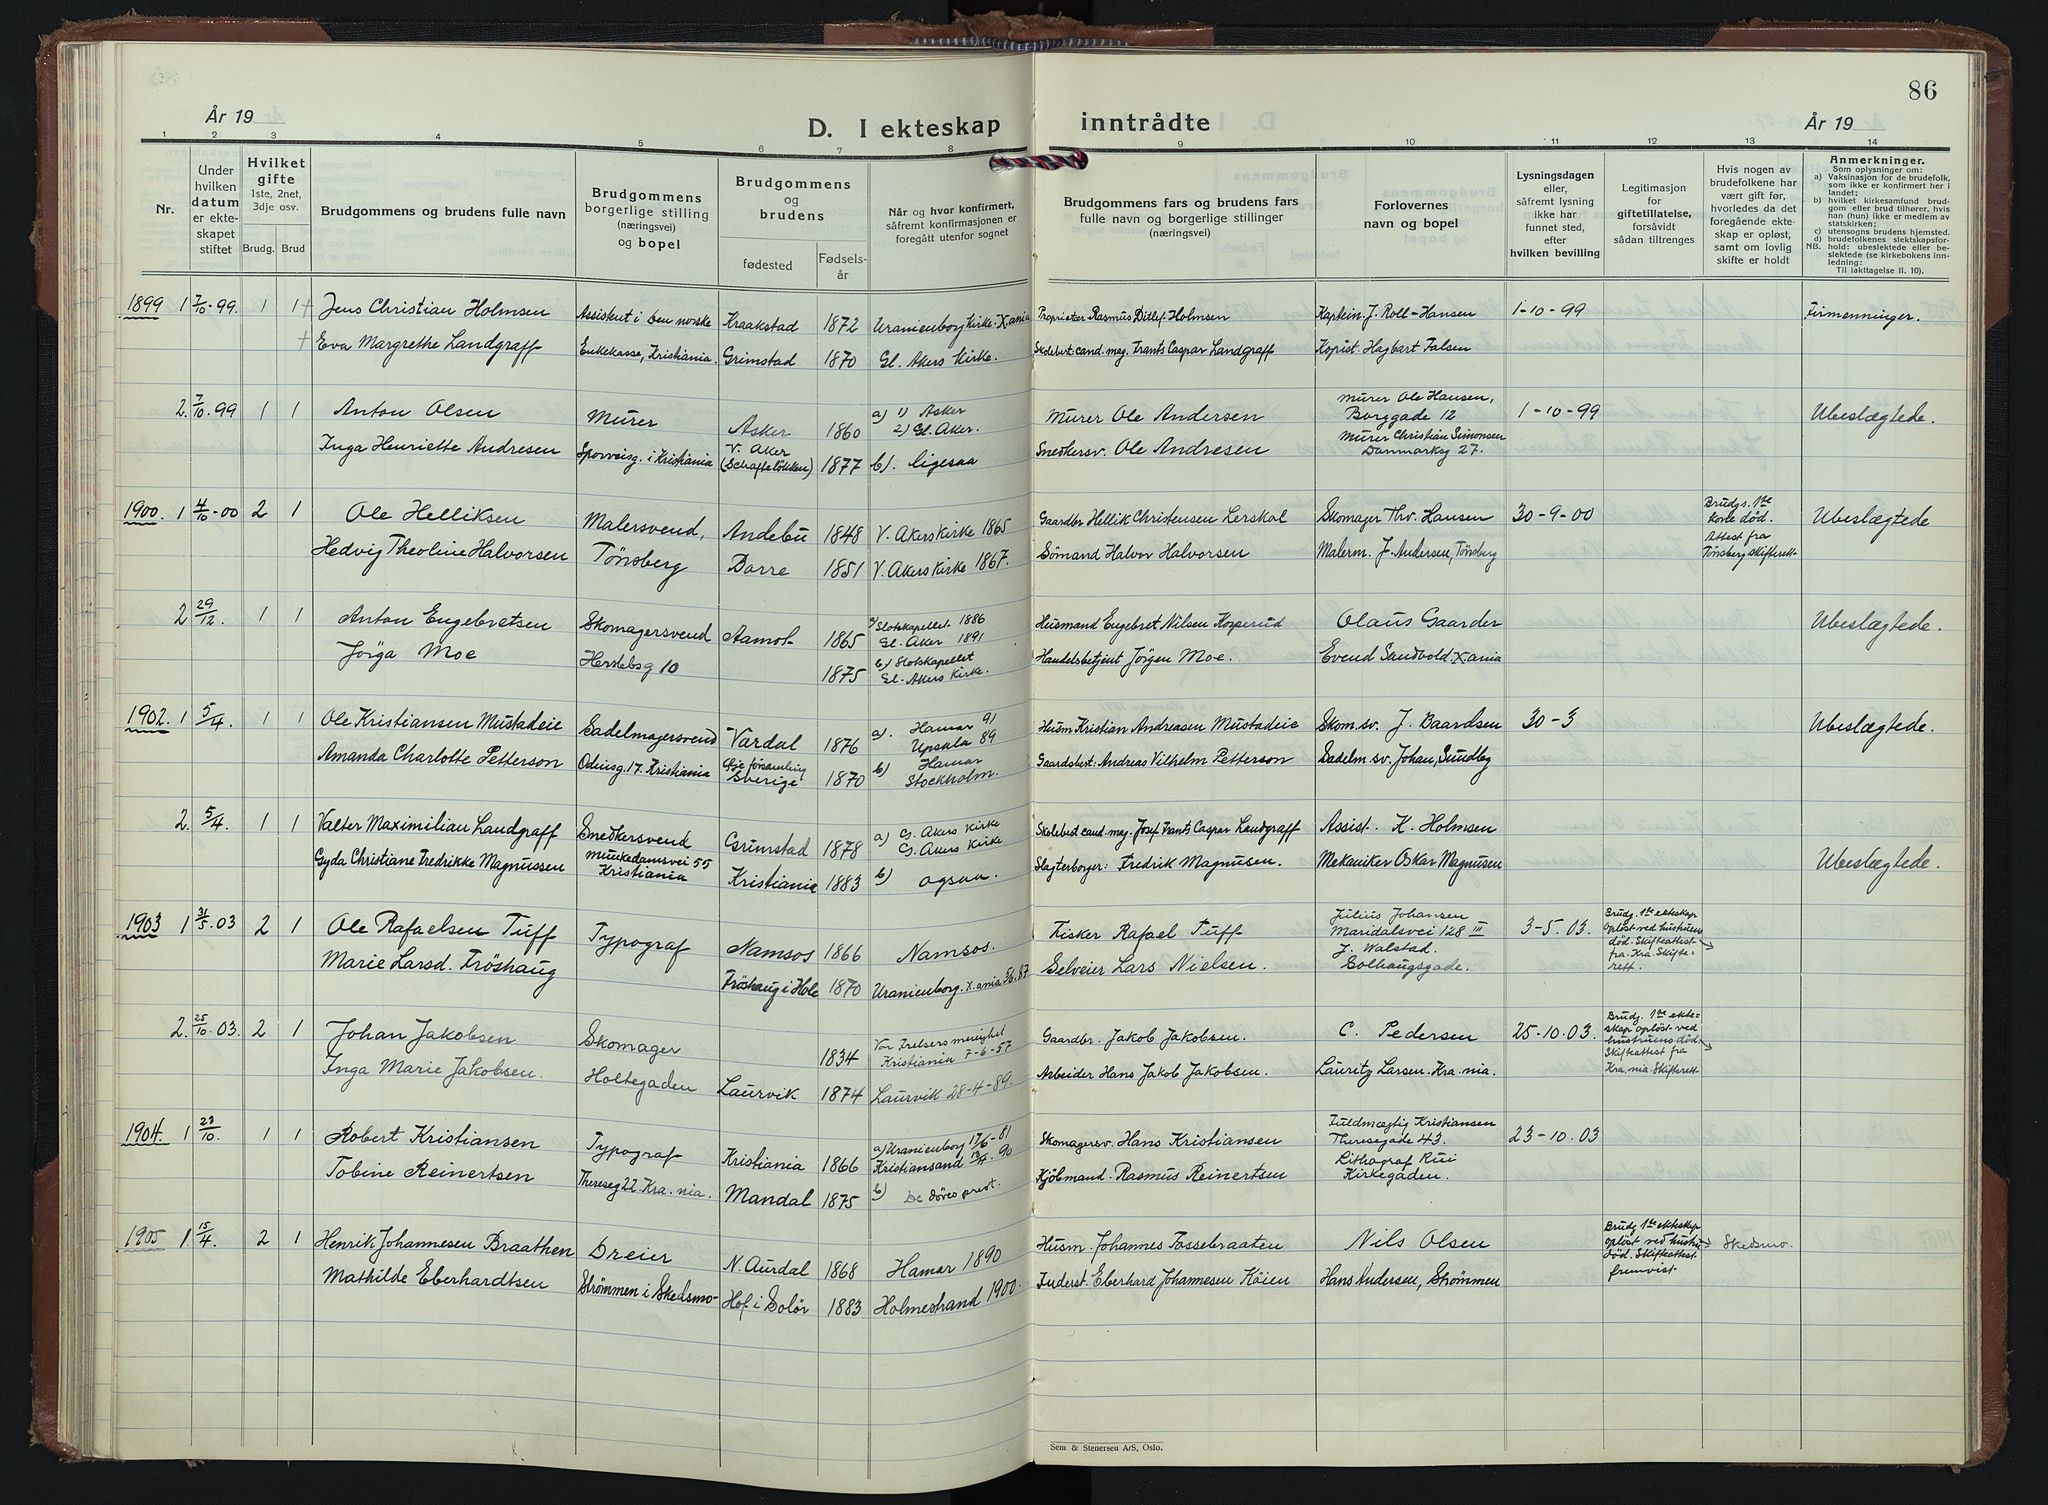 86
År 19
D. I ekteskap
inntrådte
År 19
1 2 3 4 5 6 7 8 9 10 11 12 13 14
Nr.
Under
hvilken
datum
er ekte-
skapet
stiftet
Hvilket
gifte
1ste, 2net,
3dje osv.
Brudg. Brud
Brudgommens og brudens fulle navn
Brudgommens
borgerlige stilling
(næringsvei)
og bopel
Brudgommens
og
brudens
fødested
Fødsels-
år
Når og hvor konfirmert,
såfremt konfirmasjonen er
foregått utenfor sognet
Brudgommens fars og brudens fars
fulle navn og borgerlige stillinger
(næringsvei)
Forlovernes
navn og bopel
Lysningsdagen
eller,
såfremt lysning
ikke har
funnet sted,
efter
hvilken bevilling
Legitimasjon
for
giftetillatelse,
forsåvidt
sådan tiltrenges
Hvis nogen av
brudefolkene har
vært gift før,
hvorledes da det
foregående ekte-
skap er opløst,
samt om lovlig
skifte er holdt
Anmerkninger.
Som oplysninger om:
a) Vaksinasjon for de brudefolk,
som ikke er konfirmert her i
landet;
b) hvilket kirkesamfund brud-
gom eller brud tilhører, hvis
han (hun) ikke er medlem av
statskirken;
c) utensogns brudens hjemsted.
d) brudefolkenes slektskapsfor-
NB. hold: ubeslektede eller be-
slektede (se kirkebokens inn-
ledning:
Til iakttagelse II. 10).
1899 1 7/10-99. 1 1 + Jens Christian Holmsen Assistent i Den norske Kraakstad 1872 Uranienborg Kirke-X.ania Proprietær Rasmus Ditlef Holmsen Kaptein J. Roll-Hansen 1-10-99 Firmenninger.
+ Eva Margrethe Landgraff Enkekasse, Kristiania. Grimstad 1870 Gl. Akers Kirke. Skolebest. cand. mag. Frants Caspar Landgraff Kopist Hagbart Falsen
2. 7/10 99 1 1 Anton Olsen Murer Asker 1860 a) 1) Asker
2) Gl. Aker. Murer Ole Andersen Murer Ole Hansen,
Borggade 12 1-10-99 Ubeslægtede.
Inga Henriette Andresen Sporveisg. i Kristiania V. Aker
(Schafteløkken) 1877 b). ligesaa Snedkersv. Ole Andresen Murer Christian Simonsen
Danmarksg 27.
1900. 1 4/10-00 2 1 Ole Helliksen Malersvend, Andebu 1848 V. Akers Kirke 1865 Gaardbr Hellik Christensen Lerskal Skomager Thv. Hansen 30-9-00 Brudgs. 1ste
Kone død.
Attest fra
Tønsberg skifterett. Ubeslægtede
Hedvig Theoline Halvorsen Tønsberg Borre 1851 V. Akers Kirke 1867. Sømand Halvor Halvorsen Malerm. J. Andersen, Tønsberg
2 29/12. 1 1 Anton Engebretsen Skomagersvend Aamot 1865 a) Slotskapellet 1886
Gl. Aker 1891 Husmand Engebret Nilsen Kopperud Olaus Gaarder Ubeslægtede.
Jørga Moe Herslebsg 10 1875 b) Slotskapellet
Gl. Akers Kirke. Handelsbetjent Jørgen Moe. Evend Sandvold X.ania
1902. 1 5/4. 1 1 Ole Kristiansen Mustadeie Sadelmagersvend Vardal 1876 a). Hamar 91
Upsala 89 Husm Kristian Andreasen Mustadeie Skom. sv. J. Baardsen 30-3 Ubeslægtede.
Amanda Charlotte Petterson Odinsg. 17. Kristiania Øje forsamling
Sverige 1870 b) Hamar
Stockholm. Gaardsbest: Andreas Vilhelm Petterson Sadelm. sv. Johan Sundby
2. 5/4. 1 1 Valter Maximilian Landgraff Snedkersvend Grimstad 1878 a) G. Akers Kirke
G. Akers Kirke Skolebest cand. mag. Josef Frants Caspar Landgraff Assist. K. Holmsen
Gyda Christiane Fredrikke Magnussen Munkedamsvei 55
Kristiania Kristiania 1883 b) ogsaa. Slagterborger: Fredrik Magnusen. Mekaniker Oskar Magnusen Ubeslægtede.
1903 1 31/5 03 2 1 Ole Rafaelsen Tuff Typograf Namsos 1866 Namsos. Fisker Rafael Tuff Julius Johansen
Maridalsvei 128 III 3-5. 03. Brudg. 1ste ekteskap
opløst ved hustruens
død. Skifteattest
fra Kra. Skifte-
rett.
Marie Larsd. Frøshaug Frøshaug i Hole 1870 Uranienborg. X.ania 5/6. 87 Selveier Lars Nielsen. J. Walstad.
Solhaugsgade.
2. 25/10. 03. 2 1 Johan Jakobsen Skomager 1834 Vor Frelsers menighet
Kristiania 7-6-57 Gaardbr. Jakob Jakobsen. C. Pedersen 25-10. 03. Brudg. 1ste ekte-
skap opløst ved
hustruens død.
Skifteattest fra
Kra.nia Skifterett
Inga Marie Jakobsen. Holtegaden Laurvik 1874 Laurvik 28-4-89. Arbeider Hans Jakob Jakobsen. Lauritz Larsen. Kra.nia.
1904. 1 23/10. 1 1 Robert Kristiansen Typograf Kristiania 1866 a) Uranienborg 17/6-81
Kristiansand 13/4. 90 Skomagersv. Hans Kristiansen Fuldmægtig Kristiansen
Theresegade 43. 23-10. 03
Tobine Reinertsen Thereseg 22. Kra.nia. Mandal 1875 b) De døves prest. Kjøbmand. Rasmus Reinertsen Lithograf Rui
Kirkegaden.
1905 1. 15/4. 2 1 Henrik Johannesen Braathen Dreier N. Aurdal 1868 Hamar 1890 Husm. Johannes Fossebraaten Nils Olsen Brudg 1ste ekteskap
opløst ved hustru
død. Skifteattest
fremvist Skedsmo.
Mathilde Eberhardtsen Strømmen i Skedsmo Hof i Solør 1883 Holmestrand 1900. Inderst. Eberhard Johannesen Køien Hans Andersen, Strømmen
Sem & Stenersen A/S, Oslo.